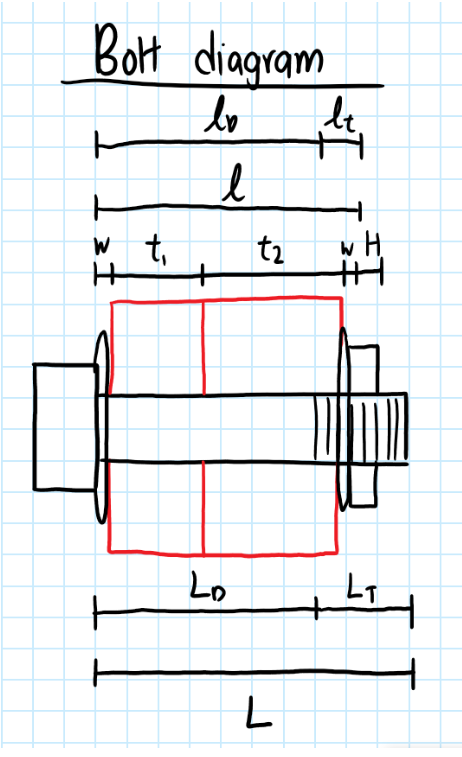 Bolt diagram
l_D l_t
l
w t₁ t₂ w H
L_D L_T
L